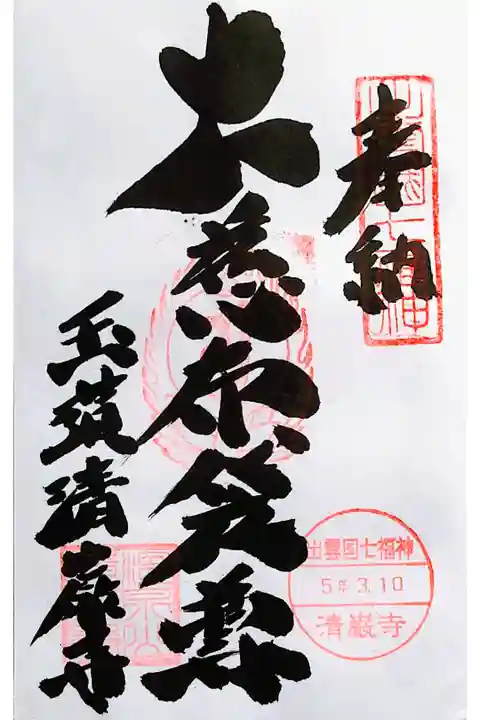 奉納
出雲国七福神
大慈布袋尊
玉造清巌寺
出雲国七福神
5年3.10
清巌寺